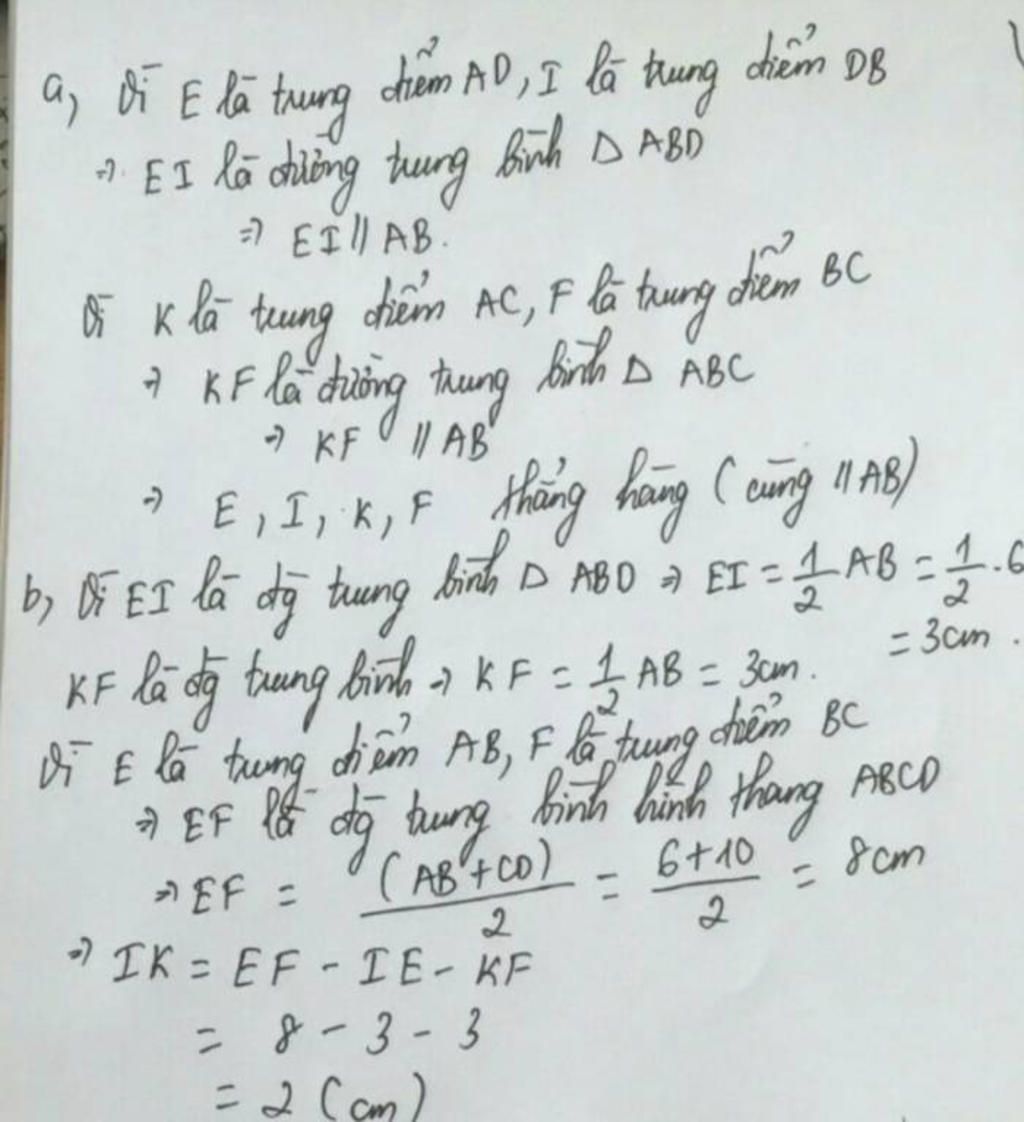 a, Vì E là trung điểm AD, I là trung điểm DB
=> EI là đường trung bình Δ ABD
=> EI // AB.
Vì K là trung điểm AC, F là trung điểm BC
=> KF là đường trung bình Δ ABC
=> KF // AB
=> E, I, K, F thẳng hàng (cùng // AB)
b, Vì EI là đg trung bình Δ ABD => EI = 1/2 AB = 1/2 . 6
= 3cm .
KF là đg trung bình => KF = 1/2 AB = 3cm.
Vì E là trung điểm AB, F là trung điểm BC
=> EF là đg trung bình hình thang ABCD
=> EF = (AB+CD)/2 = 6+10/2 = 8cm
=> IK = EF - IE - KF
= 8 - 3 - 3
= 2 (cm)